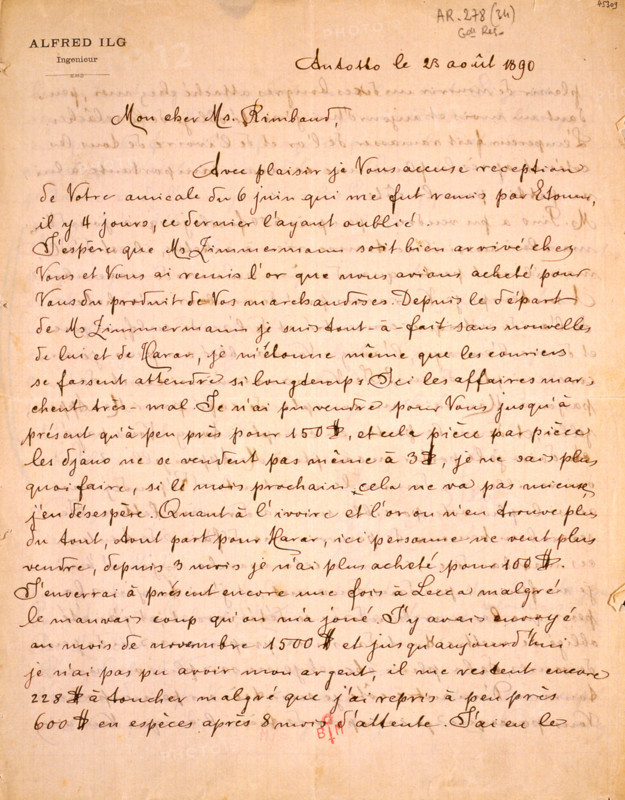 45303
AR-278 (34)
ALFRED ILG
Ingenieur
Antotto le 23 août 1890
Mon cher Ms. Rimbaud,
Avec plaisir je Vous accuse reception
de Votre amicale du 6 juin qui me fut remis par Etoun,
il y 4 jours, ce dernier l'ayant oublié.
J'espère que Ms Zimmermann soit bien arrivé chez
Vous et Vous ai remis l'or que nous avions acheté pour
Vous du produit de Vos marchandises. Depuis le départ
de Ms Zimmermann je suis tout-à-fait sans nouvelles
de lui et de Harar, je m'étonne même que les couriers
se fassent attendre si longtemps. Ici les affaires mar
chent très-mal. Je n'ai pu vendre pour Vous jusqu'à
présent qu'à peu près pour 150$, et cela pièce par pièce
les djano ne se vendent pas même à 3$, je ne sais plus
quoi faire, si le mois prochain cela ne va pas mieux,
j'en désespère. Quant à l'ivoire et l'or on n'en trouve plus
du tout, tout part pour Harar, ici personne ne veut plus
vendre, depuis 3 mois je n'ai plus acheté pour 100$.
J'enverrai à présent encore une fois à Lecca malgré
le mauvais coup qu'on m'a joué. J'y avais envoyé
au mois de novembre 1500$ et jusqu'aujourd'hui
je n'ai pas pu avoir mon argent, il me restent encore
228$ à toucher malgré que j'ai repris à peu près
600$ en espèces après 8 mois d'attente. J'ai eu le